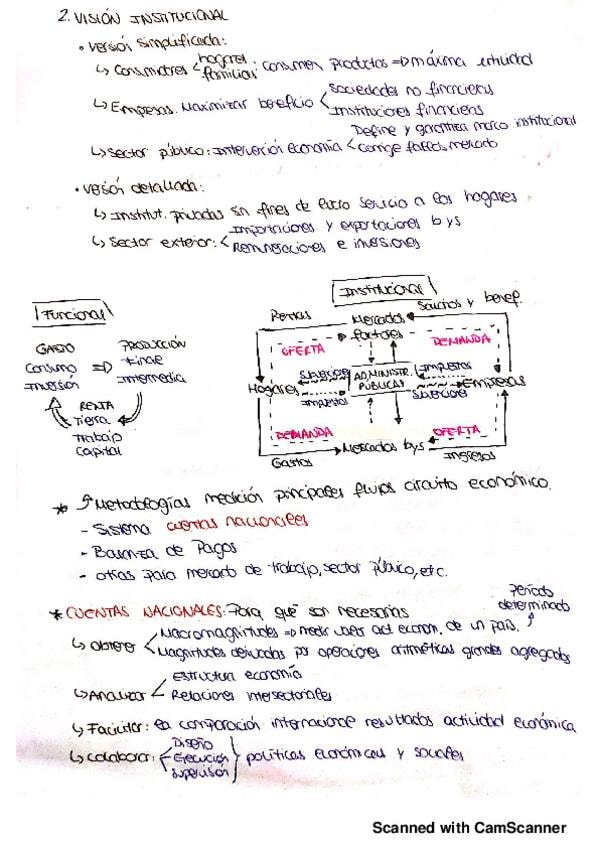 2. VISIÓN INSTITUCIONAL
• Versión simplificada:
↳ Consumidores < hogares familias: consumen productos => máxima utilidad
↳ Empresas. Maximizar beneficio < Sociedades no financieras
Instituciones financieras
Define y garantiza marco institucional
↳ Sector público: Intervención economía < Corrige fallos mercado
• Versión detallada:
↳ Institut. privadas sin fines de lucro servicio a los hogares
Importaciones y exportaciones b y s
↳ Sector exterior: < Remuneraciones e inversiones
Funcional
GASTO
Consumo
Inversión
=>
PRODUCCIÓN
Final
Intermedia
RENTA
Tierra
Trabajo
Capital
Institucional
Rentas
Mercados factores
Salarios y benef.
OFERTA
DEMANDA
Hogares
Impuestos
ADMINISTR. PÚBLICAS
Impuestos
Empresas
DEMANDA
OFERTA
Gastos
Mercados bys
Ingresos
* Metodologías medición principales flujos circuito económico.
- Sistema cuentas nacionales
- Balanza de Pagos
- otras para mercado de trabajo, sector público, etc.
* CUENTAS NACIONALES: Para qué son necesarias
Período determinado
↳ Obtener < Macromagnitudes => medir valor act económ. de un país.
Magnitudes derivadas por operaciones aritméticas grandes agregados
Estructura economía
↳ Analizar < Relaciones intersectoriales
↳ Facilitar: la comparación internacional resultados actividad económica
↳ Colaborar: Diseño
Ejecución
Supervisión
políticas económicas y sociales
Scanned with CamScanner